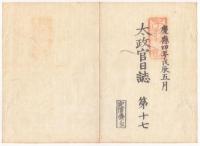 慶應四年戊辰五月
太政官日誌 第十七